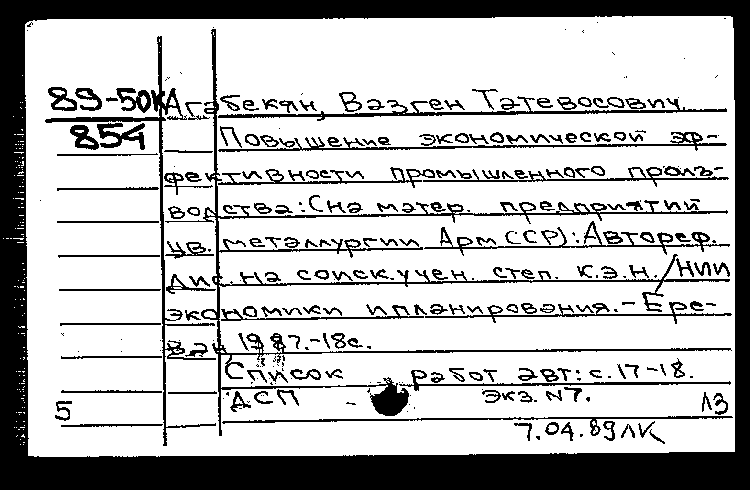 89-50К Агабекян, Вазген Татевосович
854 Повышение экономической эф-
фективности промышленного произ-
водства: (на матер. предприятий
цв. металлургии АрмССР): Автореф.
дис. на соиск. учен. степ. к.э.н. /НИИ
экономики и планирования. - Ере-
ван, 1987. - 18с.
Список работ авт: с. 17-18.
ДСП - экз. N7.
5 13
7.04.89 ЛК